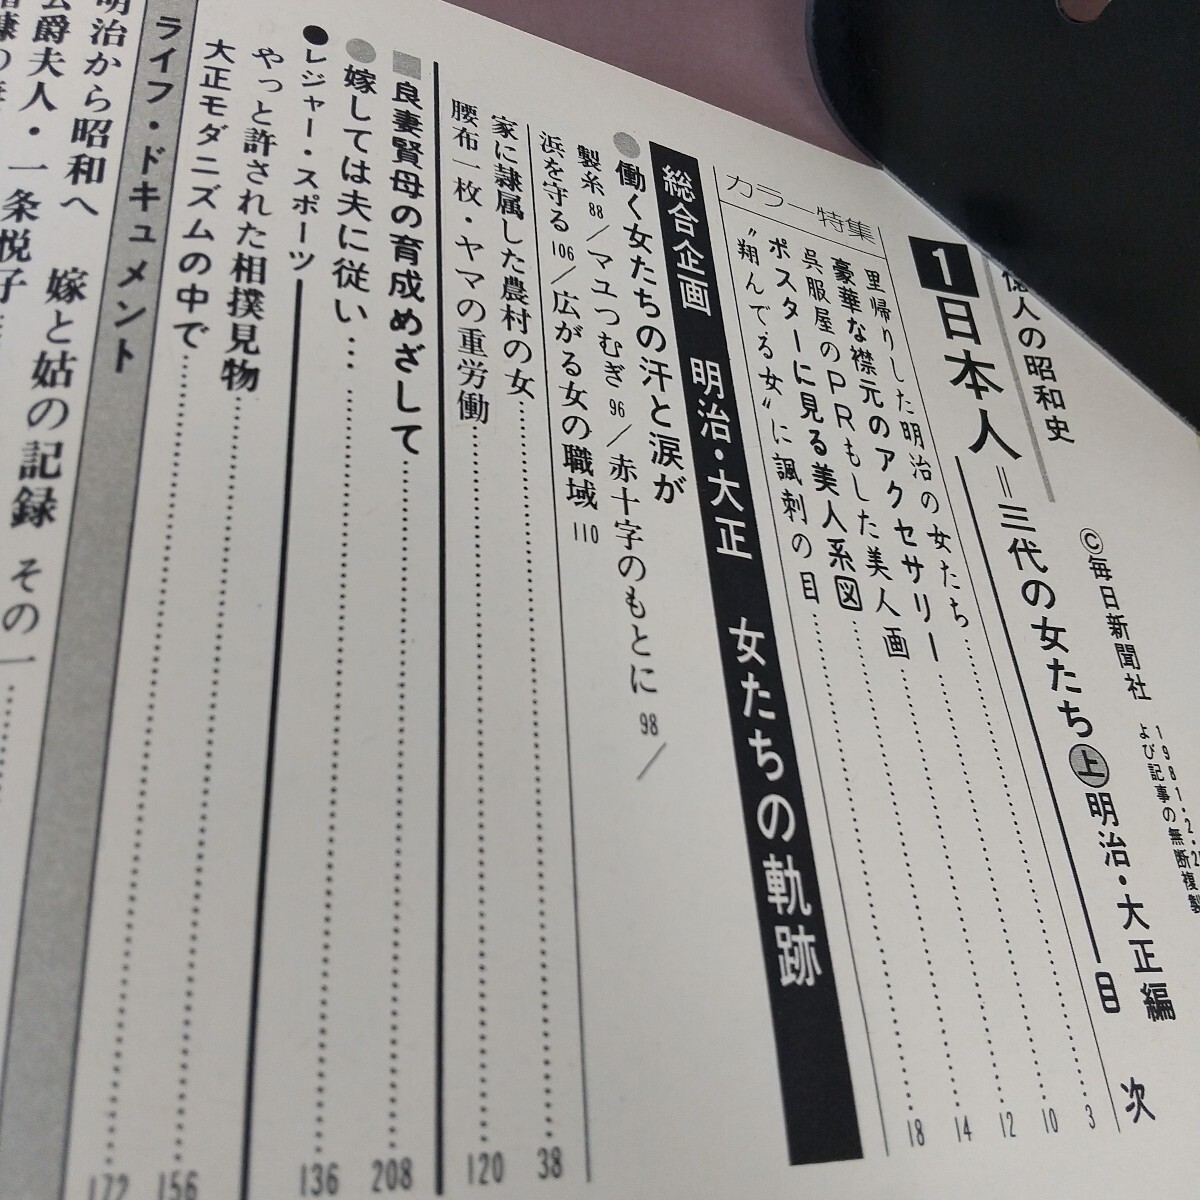 億人の昭和史
©毎日新聞社
1981.2.2
よび記事の無断複製
1日本人=三代の女たち㊤明治・大正編
目次
カラー特集
里帰りした明治の女たち 3
豪華な襟元のアクセサリー 10
呉服屋のPRもした美人画 12
ポスターに見る美人系図 14
"翔んでる女"に諷刺の目 18
総合企画 明治・大正 女たちの軌跡
働く女たちの汗と涙が
製糸 88/マユつむぎ 96/赤十字のもとに 98/
浜を守る 106/広がる女の職域 110
家に隷属した農村の女 38
腰布一枚・ヤマの重労働 120
良妻賢母の育成めざして 208
嫁しては夫に従い… 136
レジャー・スポーツ
やっと許された相撲見物 156
大正モダニズムの中で 172
ライフ・ドキュメント
明治から昭和へ 嫁と姑の記録 その一
公爵夫人・一条悦子